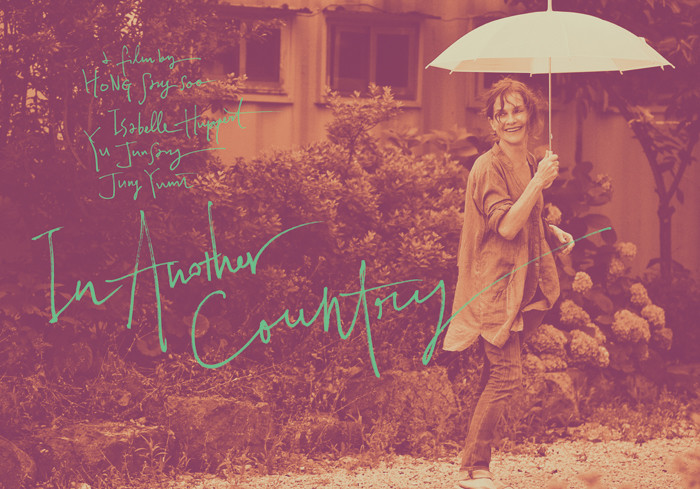 a film by
HONG Sang soo
Isabelle Huppert
Yu Junsang
Jung Yumi
In Another
Country